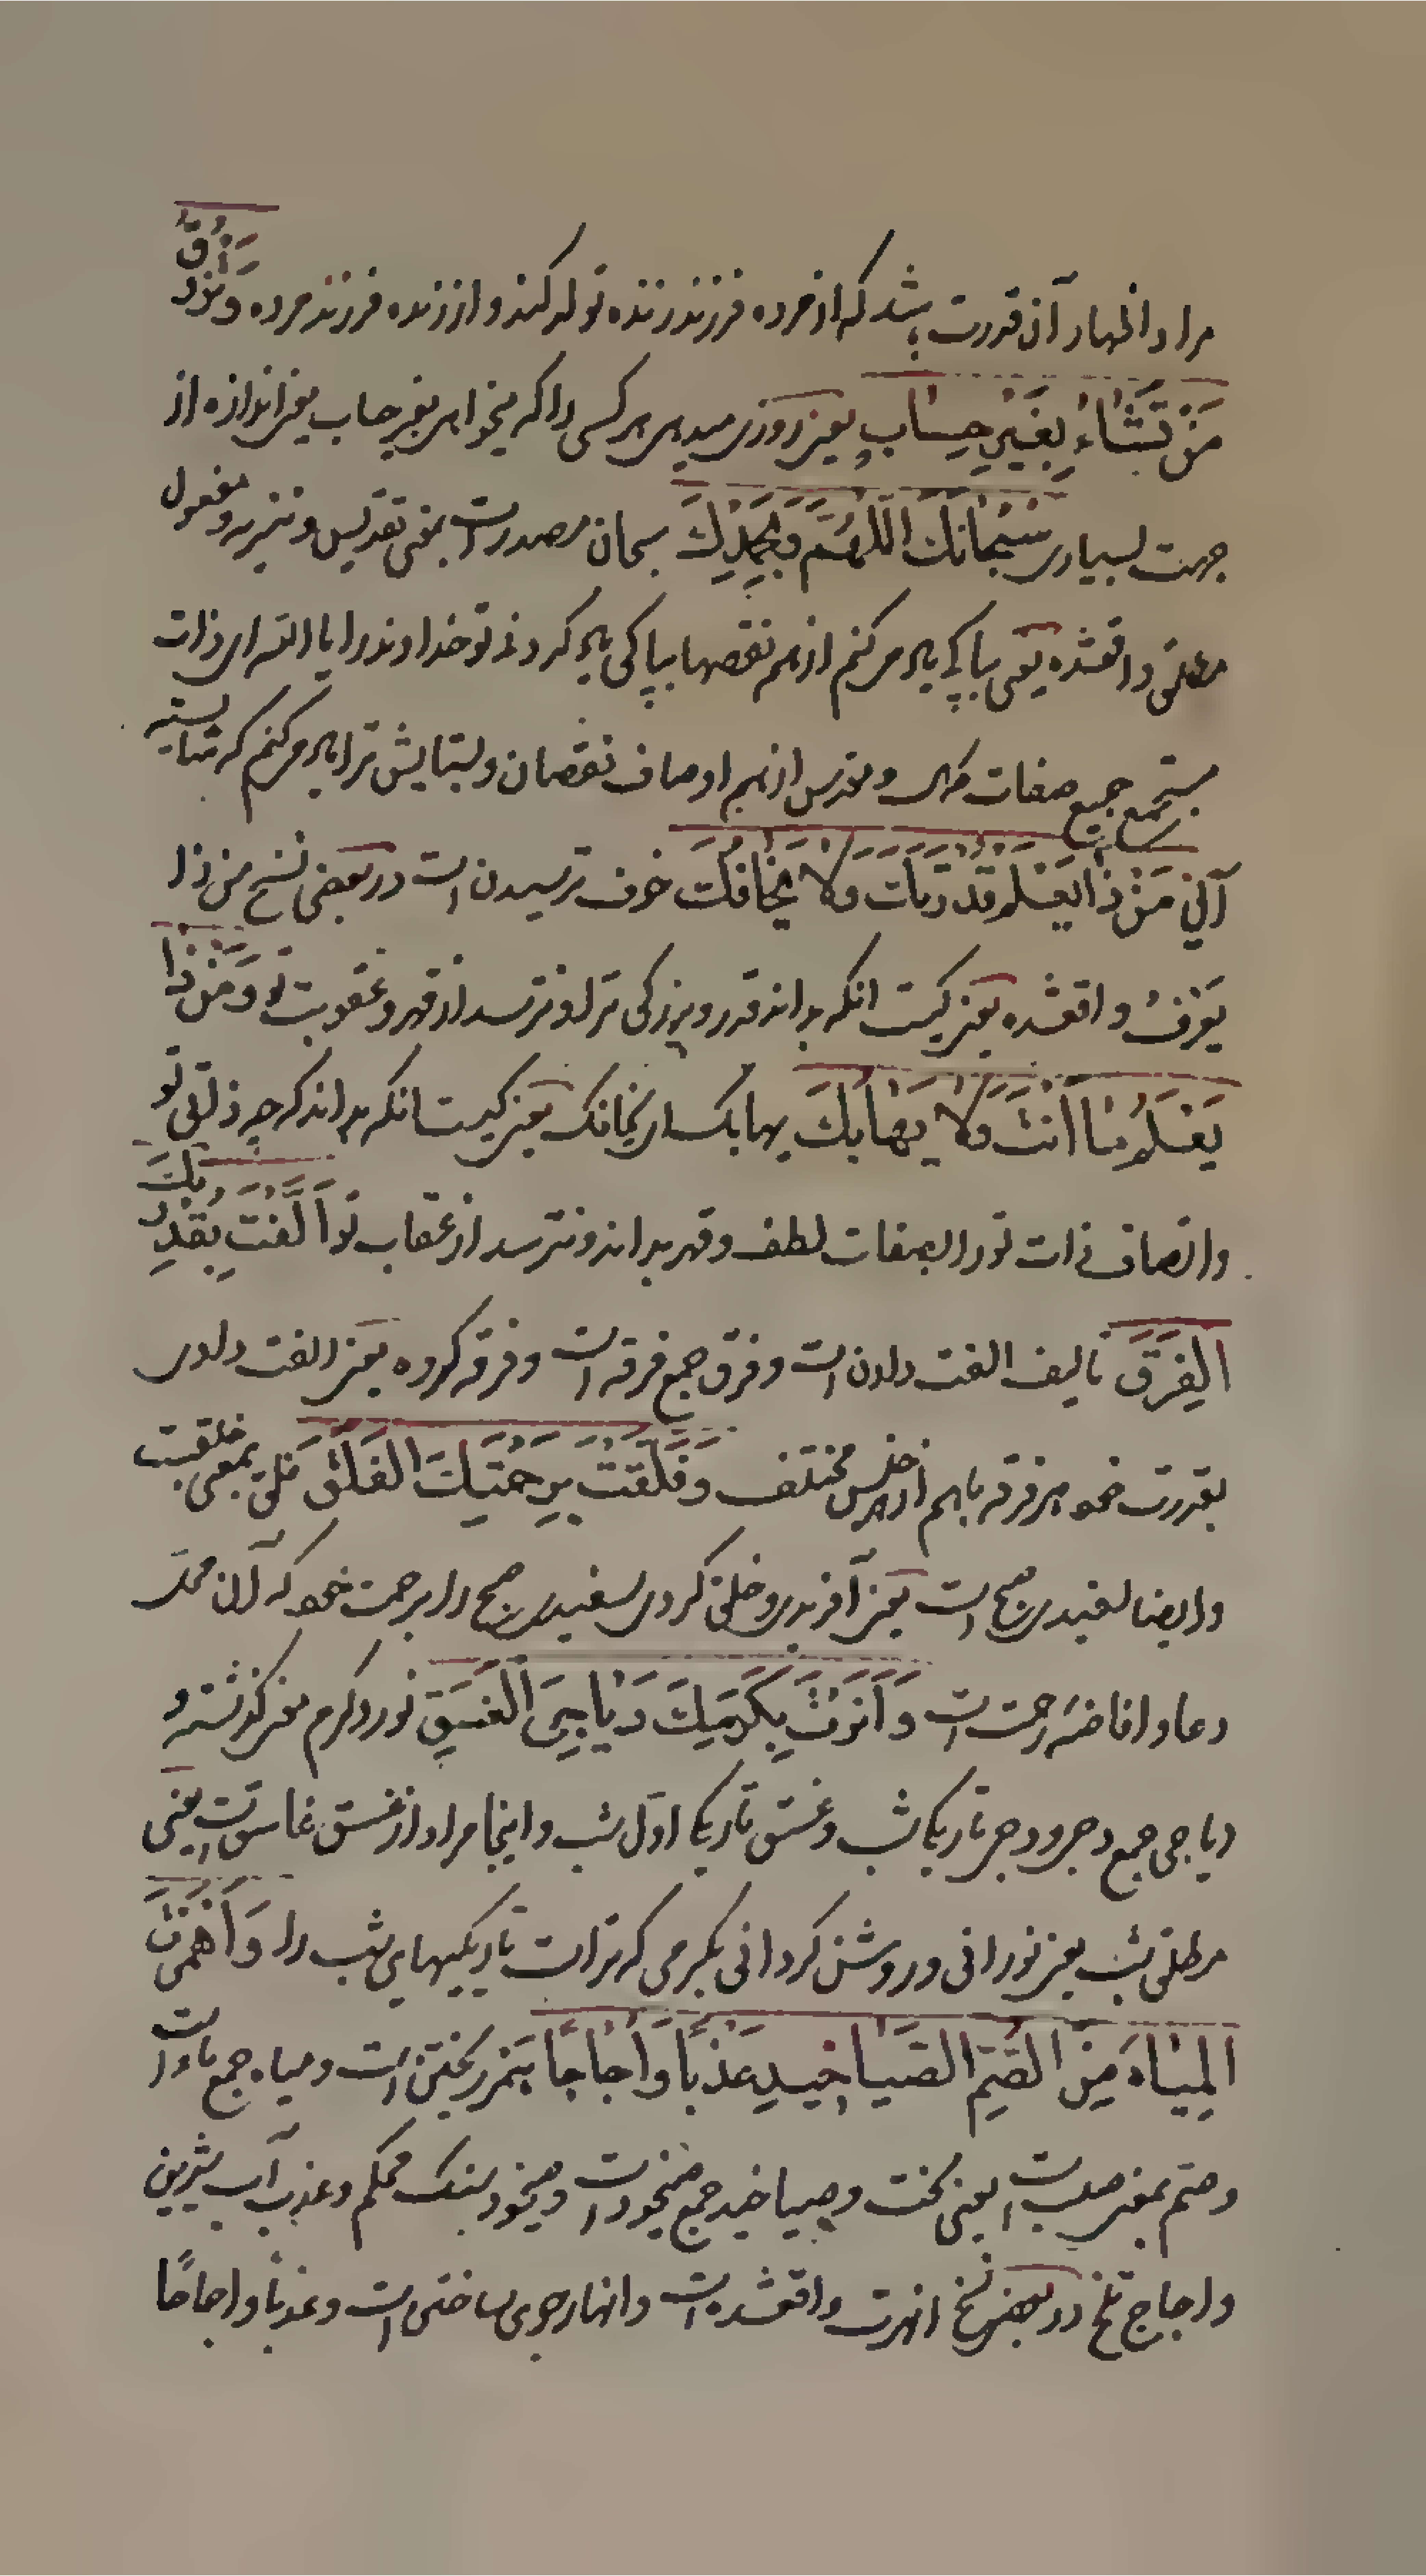 مراد اظهار آن قدرت باشد که از مرده فرزند زنده تولد کند و از زنده فرزند مرده وَتَرْزُقُ
مَنْ تَشَاءُ بِغَيْرِ حِسَابٍ یعنی روزی میدهی هر کسی را که میخواهی بغیر حساب یعنی اندازه از
جهت بسیاری سُبْحَانَكَ اللّٰهُمَّ وَبِحَمْدِكَ سبحان مصدرست بمعنی تقدیس و تنزیه و مفعول
مطلق واقعشده یعنی بپاکی یاد میکنم از هم نقصها بپاکی یاد کردنی تو خداوندرا یا الله ای ذات
مستجمع جمیع صفات کمال و مقدس از هم اوصاف نقصان و بستایش ترا یاد میکنم که شایسته
آنی مَنْ ذَا يَعْلَمُ قُدْرَتَكَ وَلَا يَخَافُكَ خوف ترسیدن است در بعضی نسخ من ذا
يَعْرِفُ واقعشده یعنی کیست انکه بداند قدر و بزرکی ترا و نترسد از قهر و عقوبت تو وَمَنْ ذَا
يَعْلَمُ مَا أَنْتَ وَلَا يَهَابُكَ یهابک ای یخافک یعنی کیست انکه بداند که چه ذاتی تو
واتصاف ذات تو را بصفات لطف و قهر بداند و نترسد از عقاب تو أَلَّفْتَ بِقُدْرَتِكَ
الْفِرَقَ تالیف الفت دادن است و فرق جمع فرقه است و فرقه کروه یعنی الفت دادی
بقدرت خود هر فرقه باهم از جنس مختلف وَفَلَقْتَ بِرَحْمَتِكَ الْفَلَقَ فلق بمعنی خلقست
وایضا سفیدی صبح است یعنی آفریدی و خلق کردی سفیدی صبح را برحمت خود که آن محل
دعا و افاضه رحمت است وَأَنَرْتَ بِكَرَمِكَ دَيَاجِيَ الْغَسَقِ نور و کرم معنی کذشته و
دیاجی جمع دجی و دجی تاریکی شب و غسق تاریکی اول شب و اینجا مراد از غسق غاسق است یعنی
مطلق شب یعنی نورانی و روشن کردانی بکرمی که تراست تاریکیهای شب را وَأَنْهَمْرْتَ
الْمِيَاهَ مِنَ الصُّمِّ الصَّيَاخِيدِ عَذْبًا وَأُجَاجًا ریختن است و میاه جمع ماء است
وصم بمعنی صلب است یعنی سخت و صیاخید جمع صیخود است و صیخود سنک محکم و عذب آب شیرین
واجاج تلخ در بعضی نسخ انهرت واقعشده است وانهار جوی ساختن است وعذبا واجاجا